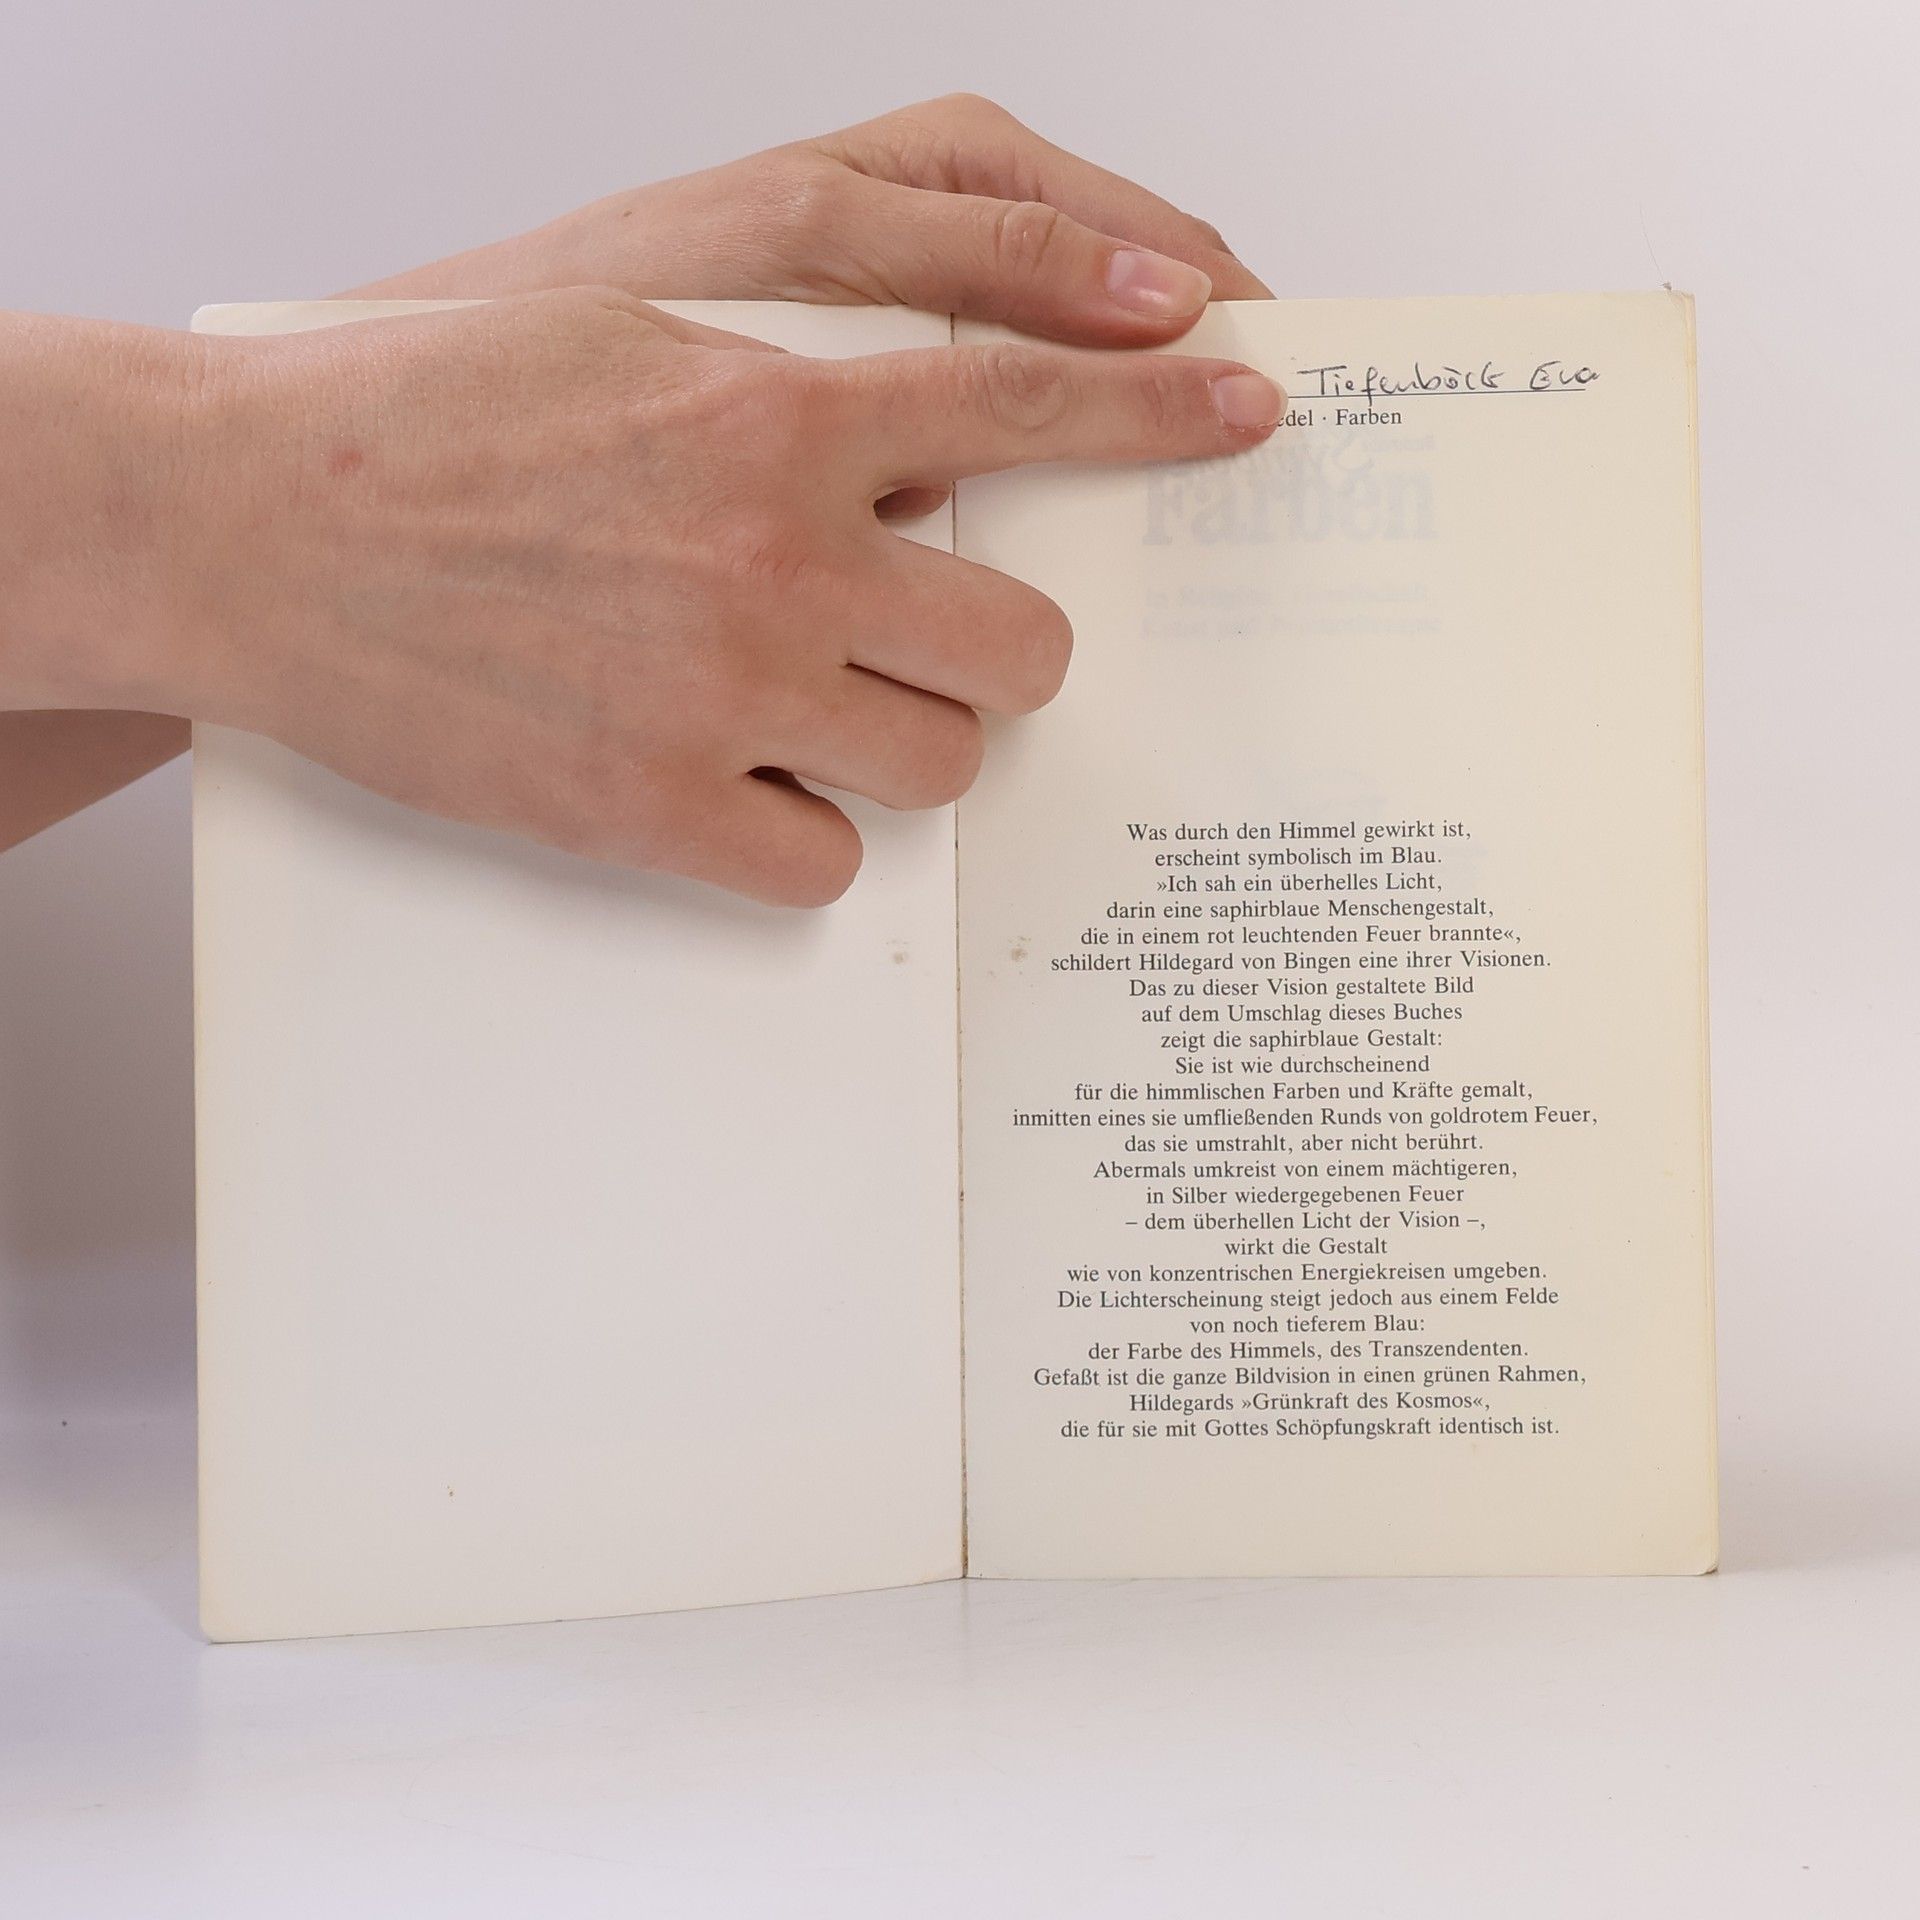 Tiefenböck Eva
edel · Farben
Farben
Was durch den Himmel gewirkt ist,
erscheint symbolisch im Blau.
»Ich sah ein überhelles Licht,
darin eine saphirblaue Menschengestalt,
die in einem rot leuchtenden Feuer brannte«,
schildert Hildegard von Bingen eine ihrer Visionen.
Das zu dieser Vision gestaltete Bild
auf dem Umschlag dieses Buches
zeigt die saphirblaue Gestalt:
Sie ist wie durchscheinend
für die himmlischen Farben und Kräfte gemalt,
inmitten eines sie umfließenden Runds von goldrotem Feuer,
das sie umstrahlt, aber nicht berührt.
Abermals umkreist von einem mächtigeren,
in Silber wiedergegebenen Feuer
– dem überhellen Licht der Vision –,
wirkt die Gestalt
wie von konzentrischen Energiekreisen umgeben.
Die Lichterscheinung steigt jedoch aus einem Felde
von noch tieferem Blau:
der Farbe des Himmels, des Transzendenten.
Gefaßt ist die ganze Bildvision in einen grünen Rahmen,
Hildegards »Grünkraft des Kosmos«,
die für sie mit Gottes Schöpfungskraft identisch ist.